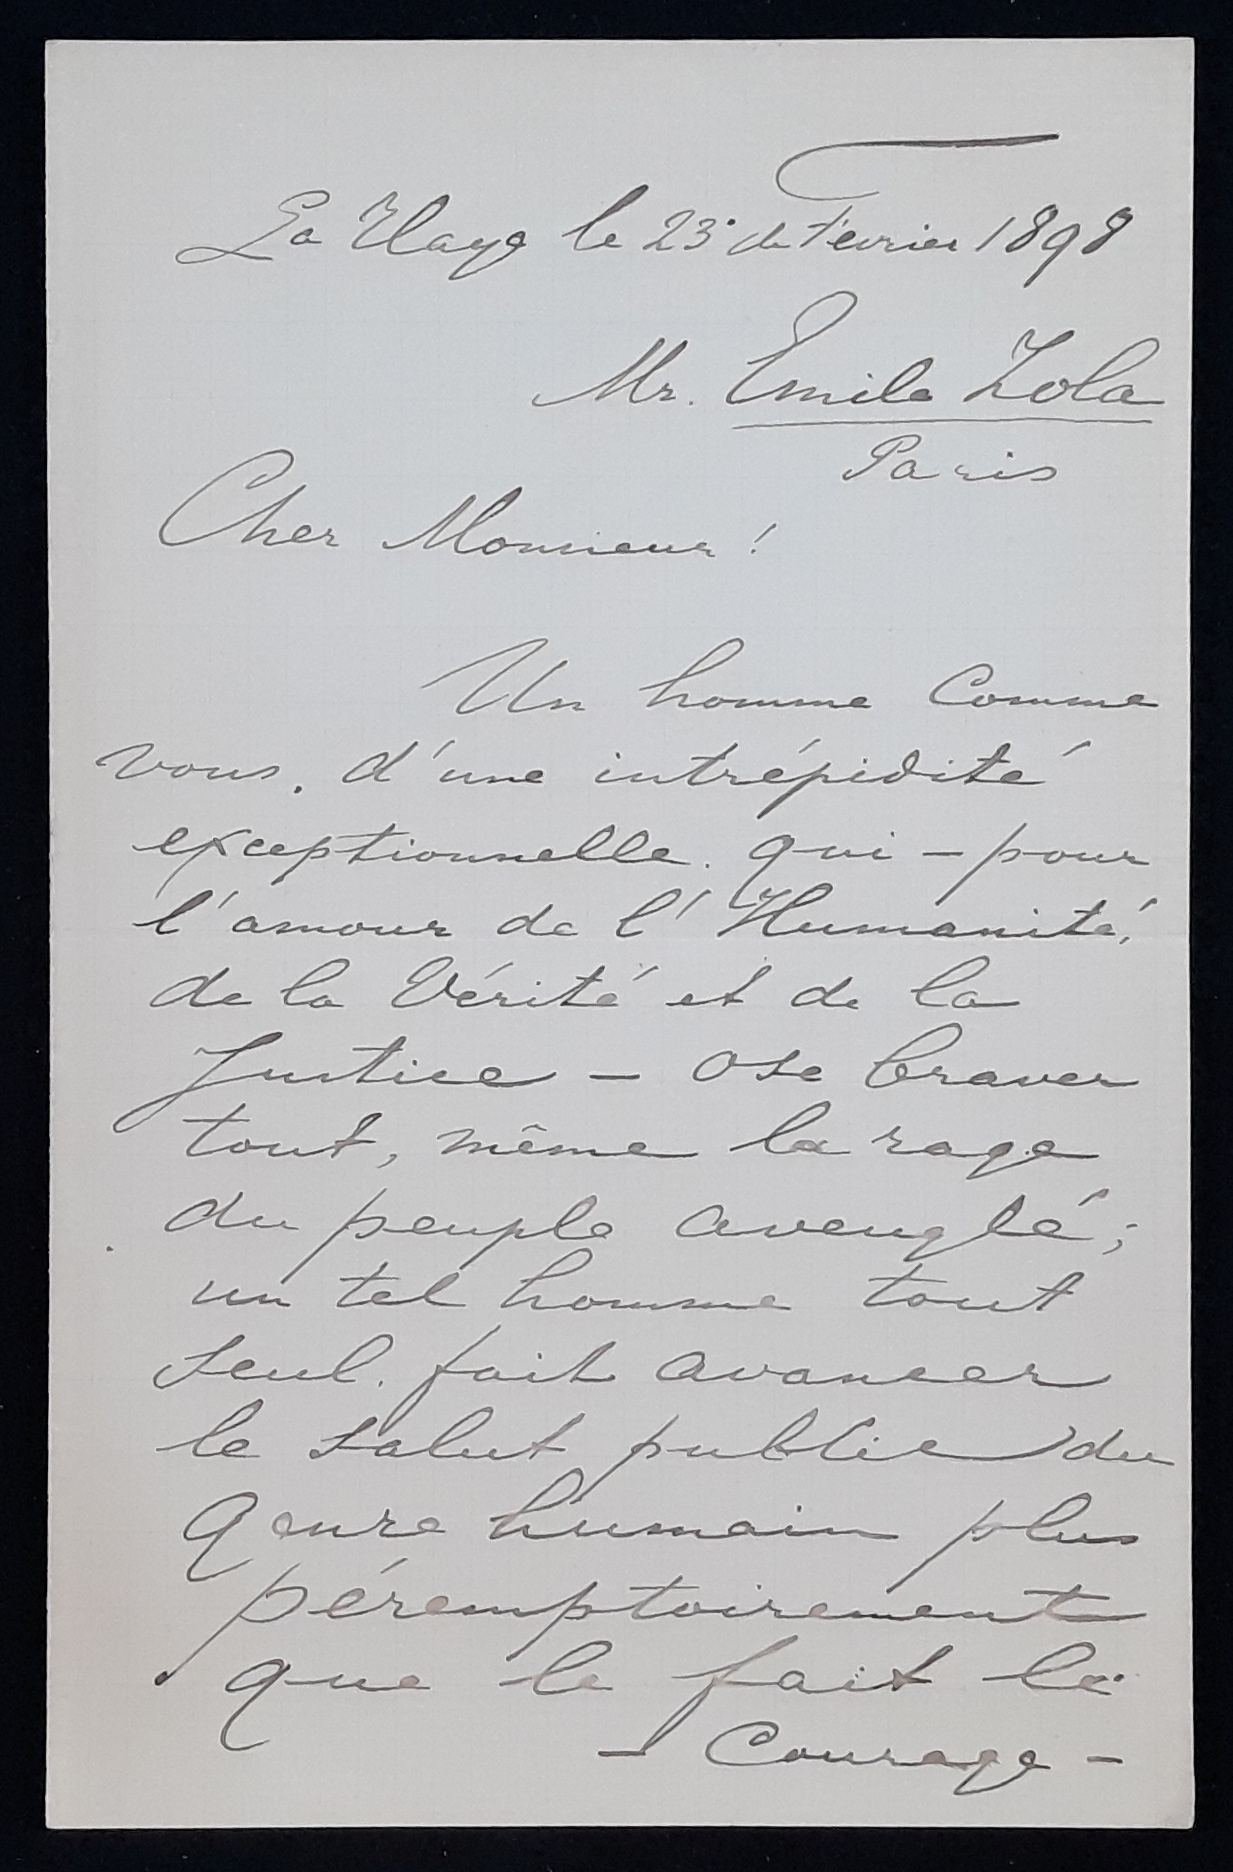 La Haye le 23 de Février 1898
Mr. Emile Zola
Paris
Cher Monsieur!
Un homme comme
vous, d'une intrépidité
exceptionnelle. qui – pour
l'amour de l'Humanité,
de la Vérité et de la
Justice – ose braver
tout, même la rage
du peuple aveuglé;
un tel homme tout
seul. fait avancer
le salut public du
genre humain plus
péremptoirement
que le fait le
– Courage –